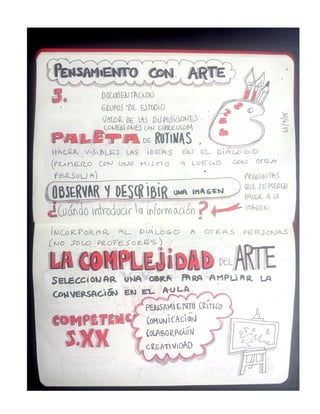 PENSAMIENTO CON ARTE
3.
DOCUMENTACIÓN
GRUPOS DE ESTUDIO
VALOR DE LAS DISPOSICIONES
CONEXIONES CON CURRICULUM
PALETA DE RUTINAS.
HACER VISIBLES LAS IDEAS EN EL DIÁLOGO
(PRIMERO CON UNO MISMO Y LUEGO CON OTRA
PERSONA)
OBSERVAR Y DESCRIBIR UNA IMAGEN
PREGUNTAS
QUE SE PUEDEN
HACER A LA
IMAGEN
¿Cuándo introducir la información?
INCORPORAR AL DIÁLOGO A OTRAS PERSONAS
(NO SOLO PROFESORES)
LA COMPLEJIDAD DEL ARTE
SELECCIONAR UNA OBRA PARA AMPLIAR LA
CONVERSACIÓN EN EL AULA
COMPETENC
S.XX
PENSAMIENTO CRÍTICO
COMUNICACIÓN
COLABORACIÓN
CREATIVIDAD